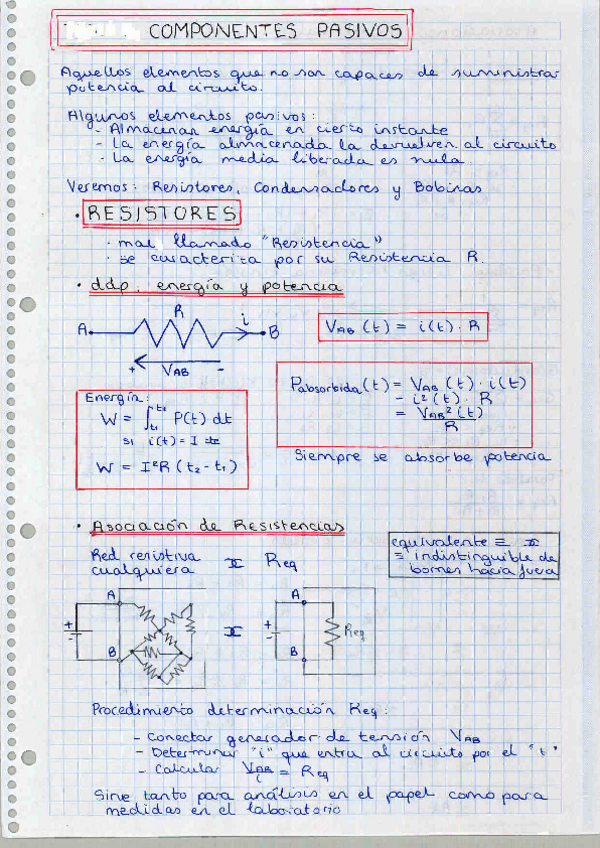 COMPONENTES PASIVOS
Aquellos elementos que no son capaces de suministrar
potencia al circuito.
Algunos elementos pasivos:
- Almacenan energía en cierto instante
- La energía almacenada la devuelven al circuito
- La energía media liberada es nula.
Veremos: Resistores, Condensadores y Bobinas
• RESISTORES
· mal llamado "Resistencia"
· se caracteriza por su Resistencia R.
• ddp, energía y potencia
R
A
i
B
+ VAB -
VAB (t) = i(t) · R
Energía:
W = ∫t1t2 P(t) dt
si i(t) = I
W = I²R (t2 - t1)
Pabsorbida(t) = VAB (t) · i(t)
= i²(t) · R
= VAB²(t)
R
Siempre se absorbe potencia
• Asociación de Resistencias
Red resistiva
cualquiera
Req
equivalente ≡
≡ indistinguible de
bornes hacia fuera
A
+
-
B
A
+
-
B
Req
Procedimiento determinación Req:
- Conectar generador de tensión VAB
- Determinar "i" que entra al circuito por el "+"
- Calcular VAB/i = Req
Sirve tanto para análisis en el papel como para
medidas en el laboratorio